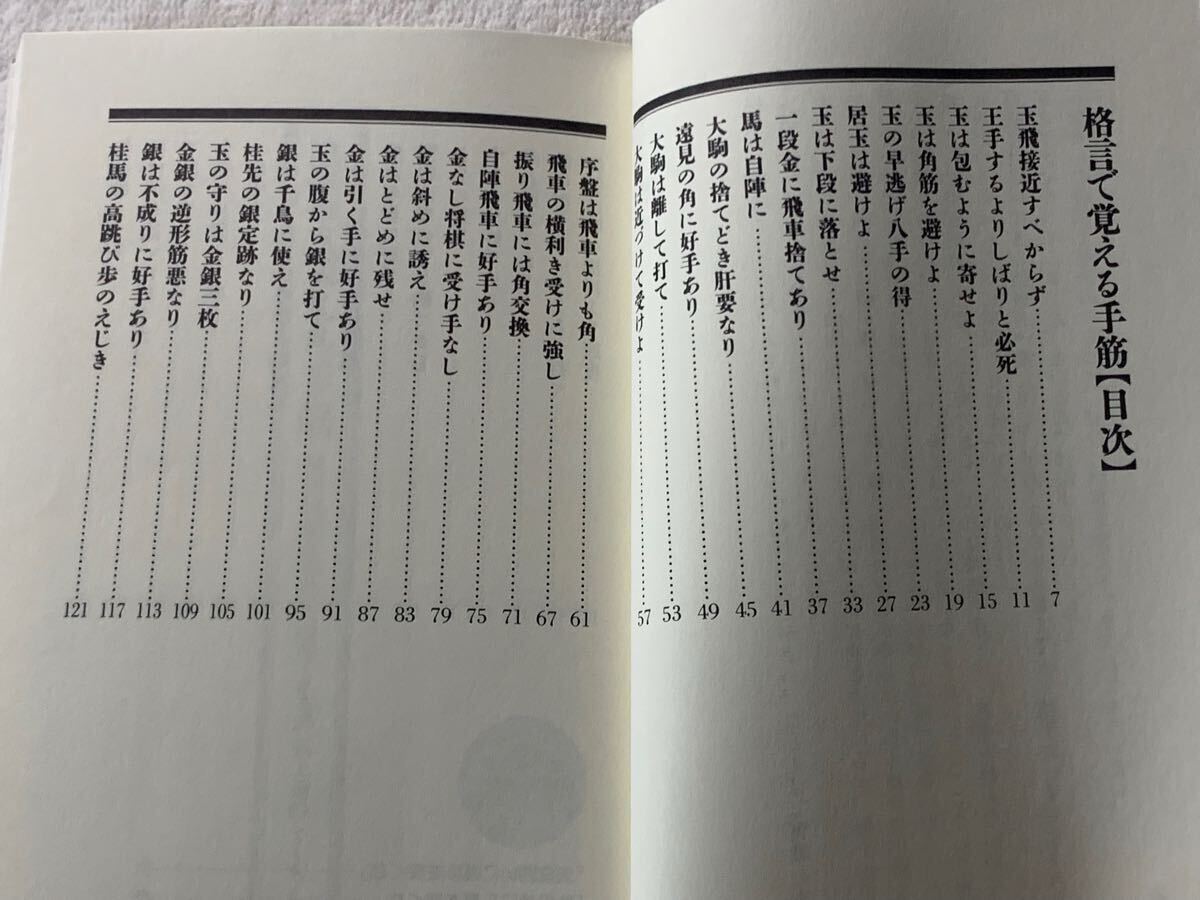 格言で覚える手筋【目次】
玉飛接近すべからず……7
王手するよりしばりと必死……11
玉は包むように寄せよ……15
玉は角筋を避けよ……19
玉の早逃げ八手の得……23
居玉は避けよ……27
玉は下段に落とせ……33
一段金に飛車捨てあり……37
馬は自陣に……41
大駒の捨てどき肝要なり……45
遠見の角に好手あり……49
大駒は離して打て……53
大駒は近づけて受けよ……57
序盤は飛車よりも角……61
飛車の横利き受けに強し……67
振り飛車には角交換……71
自陣飛車に好手あり……75
金なし将棋に受け手なし……79
金は斜めに誘え……83
金はとどめに残せ……87
金は引く手に好手あり……91
玉の腹から銀を打て……95
銀は千鳥に使え……101
桂先の銀定跡なり……105
玉の守りは金銀三枚……109
金銀の逆形筋悪なり……113
銀は不成りに好手あり……117
桂馬の高跳び歩のえじき……121